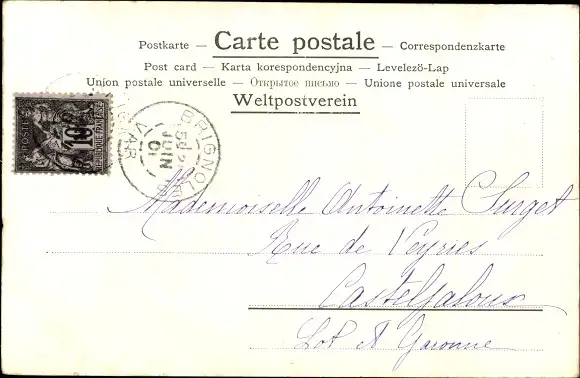 Postkarte — Carte postale — Correspondenzkarte
Post card — Karta korespondencyjna — Levelező-Lap
Union postale universelle — Открытое письмо — Unione postale universale
Weltpostverein
POSTES
10
REPUBLIQUE FRANÇAISE
BRIGNOLES
5 JUIN 01
VAR
Mademoiselle Antoinette Surget
Rue de Veyries
Casteljaloux
Lot et Garonne